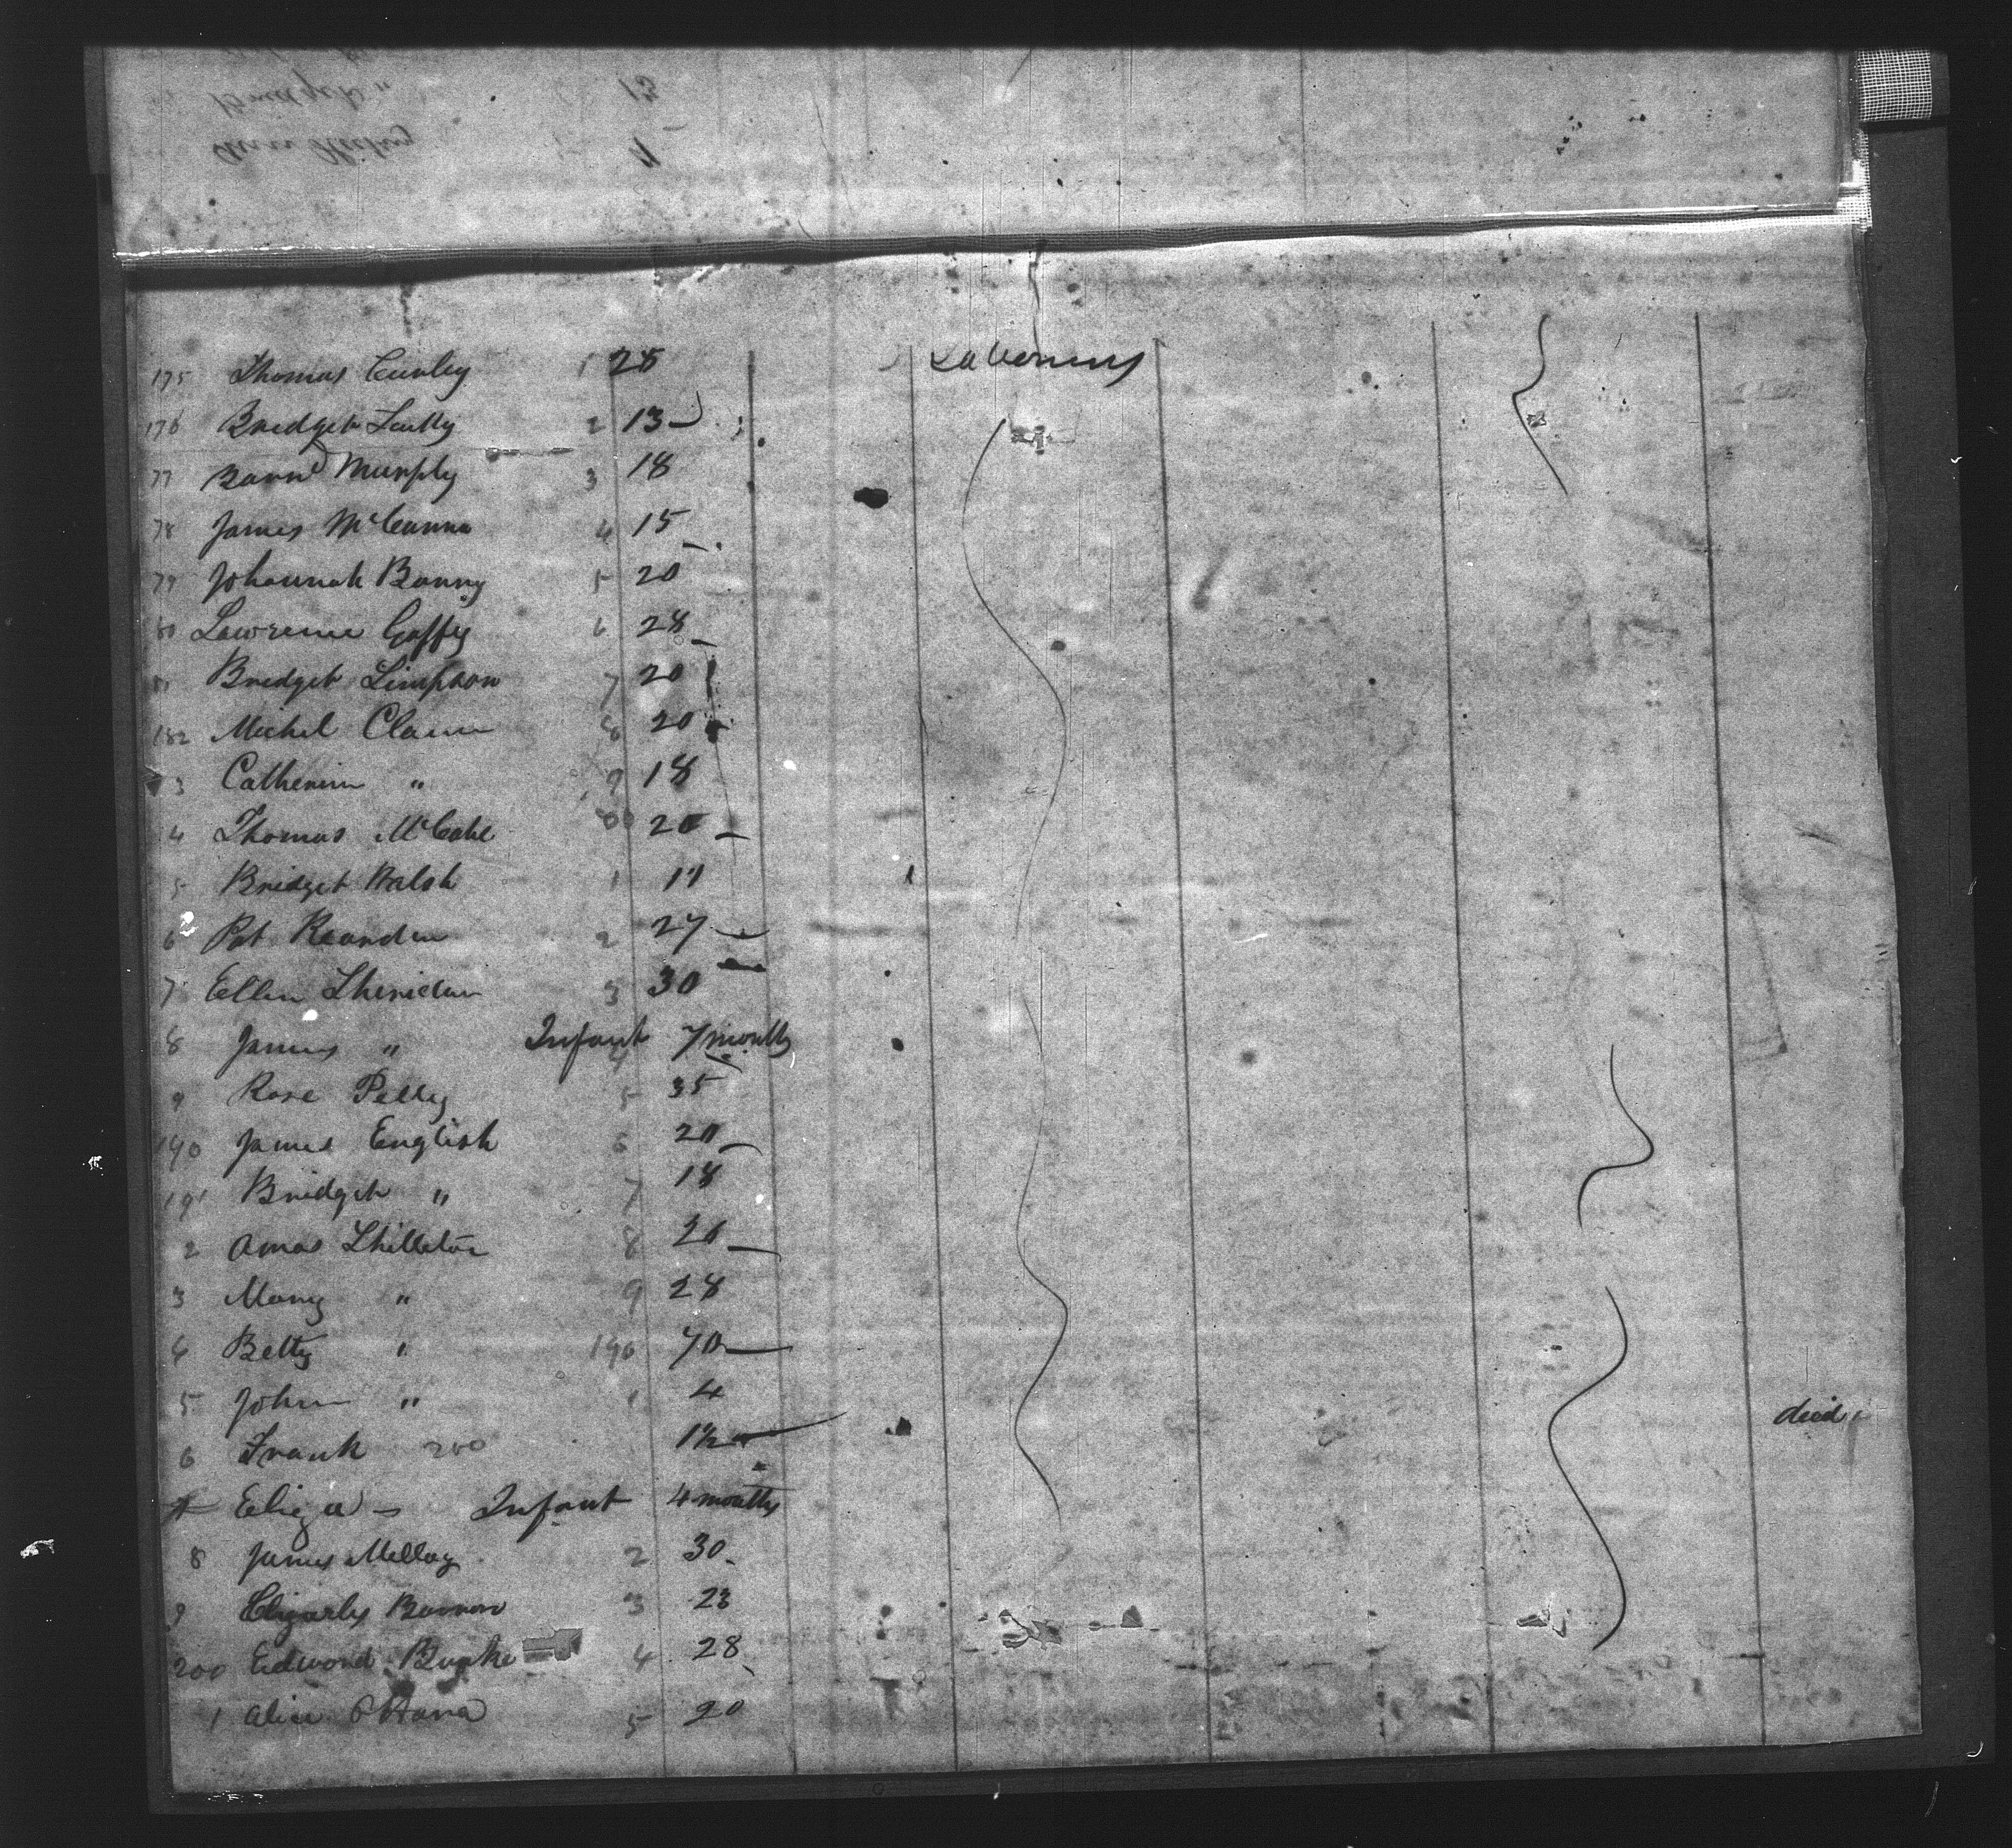 175 Thomas Curley 1 25 Labourers
176 Bridget Scully 2 13
77 Barnd Murphy 3 18
78 James McCanna 4 15
79 Johannah Banny 5 20
80 Lawrence Gaffey 6 28
81 Bridget Simpson 7 20
182 Michel Clauu 8 20
3 Catherin " 9 18
4 Thomas McCabe 20
5 Bridget Walsh 1 17
6 Pat Rearden 2 27
7 Ellen Sheridan 3 30
8 James " Infant 4 7 months
9 Rose Pelly 5 35
190 James English 6 20
191 Bridget " 7 18
2 Amos Shilleton 8
3 Mary " 9 28
4 Betty " 190 70
5 John " 1 4
6 Frank 200 1½ died
Eliza - Infant 4 months
8 James Melloy 2 30
9 Bannon 3 23
200 Edward Burke 4 28
1 Alice OHara 5 20